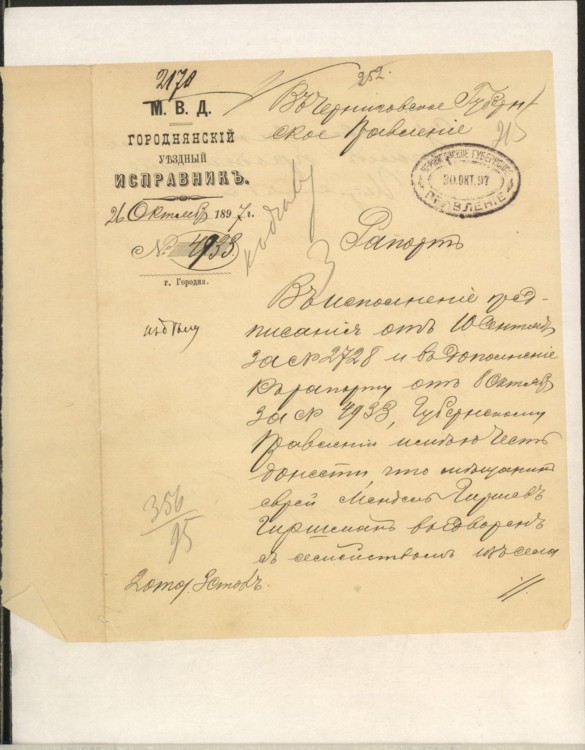 2178
252.
М. В. Д.
ГОРОДНЯНСКІЙ
УѢЗДНЫЙ
ИСПРАВНИКЪ.
26 Октября 1897 г.
№ 4933
г. Городня.
Въ Черниговское Губерн-
ское Правленіе
315
ЧЕРНИГОВСКОЕ ГУБЕРНСКОЕ
30.ОКТ.97
ПРАВЛЕНІЕ
Рапортъ
Въ исполненіе пред-
писанія отъ 10 Сентября
за № 2728 и въ дополненіе
къ рапорту отъ 8 Октября
за № 4933, Губернскому
Правленію имѣю честь
донести, что мѣщанинъ
еврей Мендель Гиршевъ
Гиршманъ выдворенъ
съ семействомъ изъ села
356
95
2 отд 3 столъ.